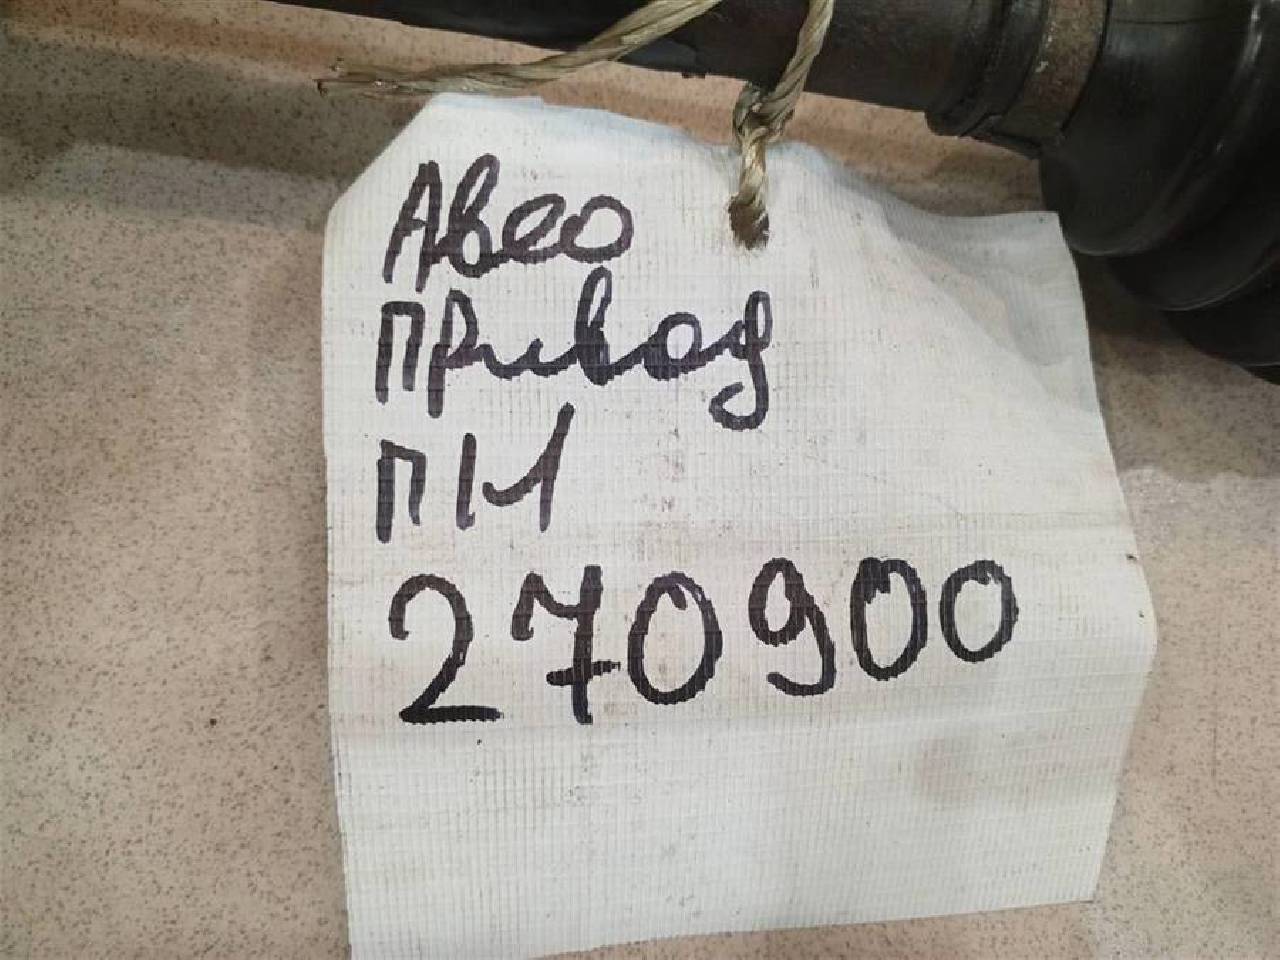 Авео
Привод
ПП
270900